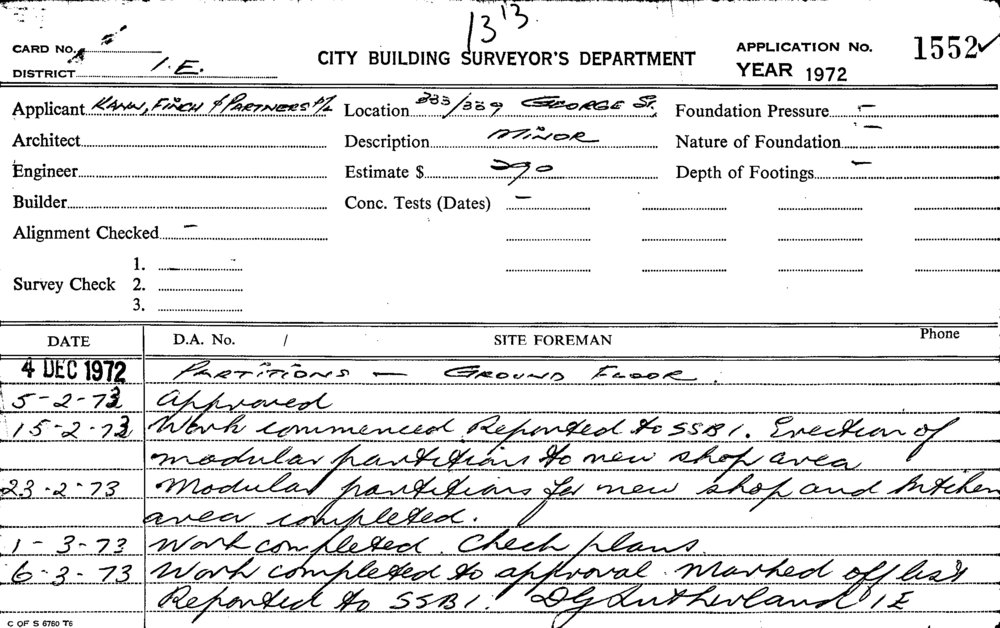 13 13.
CARD No.
DISTRICT 1. E.
CITY BUILDING SURVEYOR'S DEPARTMENT
APPLICATION No. 1552 ✓
YEAR 1972
Applicant KANN, FINCH & PARTNERS P/L Location 333/339 GEORGE St. Foundation Pressure –
Architect Description MINOR Nature of Foundation –
Engineer Estimate $ 290 Depth of Footings –
Builder Conc. Tests (Dates) –
Alignment Checked –
1. –
Survey Check 2.
3.
DATE D.A. No. / SITE FOREMAN Phone
4 DEC 1972 PARTITIONS — GROUND FLOOR.
5-2-73 Approved
15-2-73 Work commenced Reported to SSB1. Erection of
modular partitions to new shop area
23-2-73 Modular partitions for new shop and kitchen
area completed.
1-3-73 Work completed. Check plans.
6-3-73 Work completed to approval. Marked off list
Reported to SSB1. DG Sutherland 1E
C OF S 6760 T6